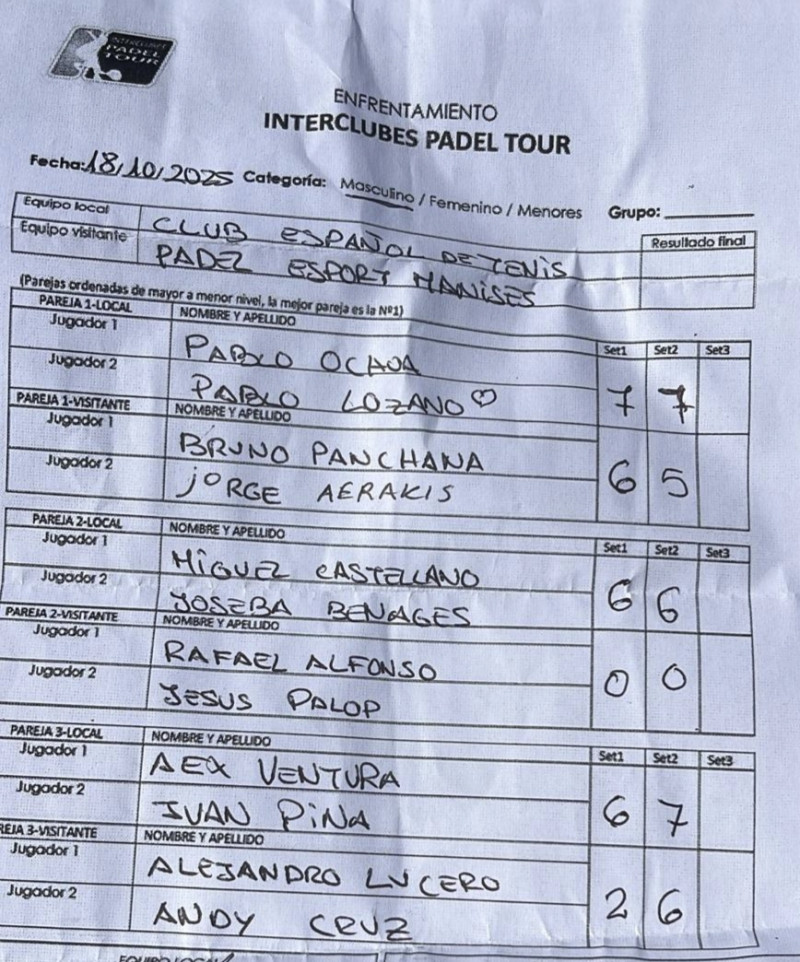 INTERCLUBES
PADEL
TOUR
ENFRENTAMIENTO
INTERCLUBES PADEL TOUR
Fecha: 18/10/2025 Categoría: Masculino / Femenino / Menores Grupo:
Equipo local CLUB ESPAÑOL DE TENIS Resultado final
Equipo visitante PADEL ESPORT MANISES
(Parejas ordenadas de mayor a menor nivel, la mejor pareja es la Nº1)
PAREJA 1-LOCAL NOMBRE Y APELLIDO Set1 Set2 Set3
Jugador 1 PABLO OCHOA
Jugador 2 PABLO LOZANO 7 7
PAREJA 1-VISITANTE NOMBRE Y APELLIDO
Jugador 1 BRUNO PANCHANA
Jugador 2 JORGE AERAKIS 6 5
PAREJA 2-LOCAL NOMBRE Y APELLIDO Set1 Set2 Set3
Jugador 1 MIGUEL CASTELLANO
Jugador 2 JOSEBA BENAGES 6 6
PAREJA 2-VISITANTE NOMBRE Y APELLIDO
Jugador 1 RAFAEL ALFONSO
Jugador 2 JESUS PALOP 0 0
PAREJA 3-LOCAL NOMBRE Y APELLIDO Set1 Set2 Set3
Jugador 1 AEX VENTURA
Jugador 2 IVAN PINA 6 7
REJA 3-VISITANTE NOMBRE Y APELLIDO
Jugador 1 ALEJANDRO LUCERO
Jugador 2 ANDY CRUZ 2 6
EQUIPO LOCAL